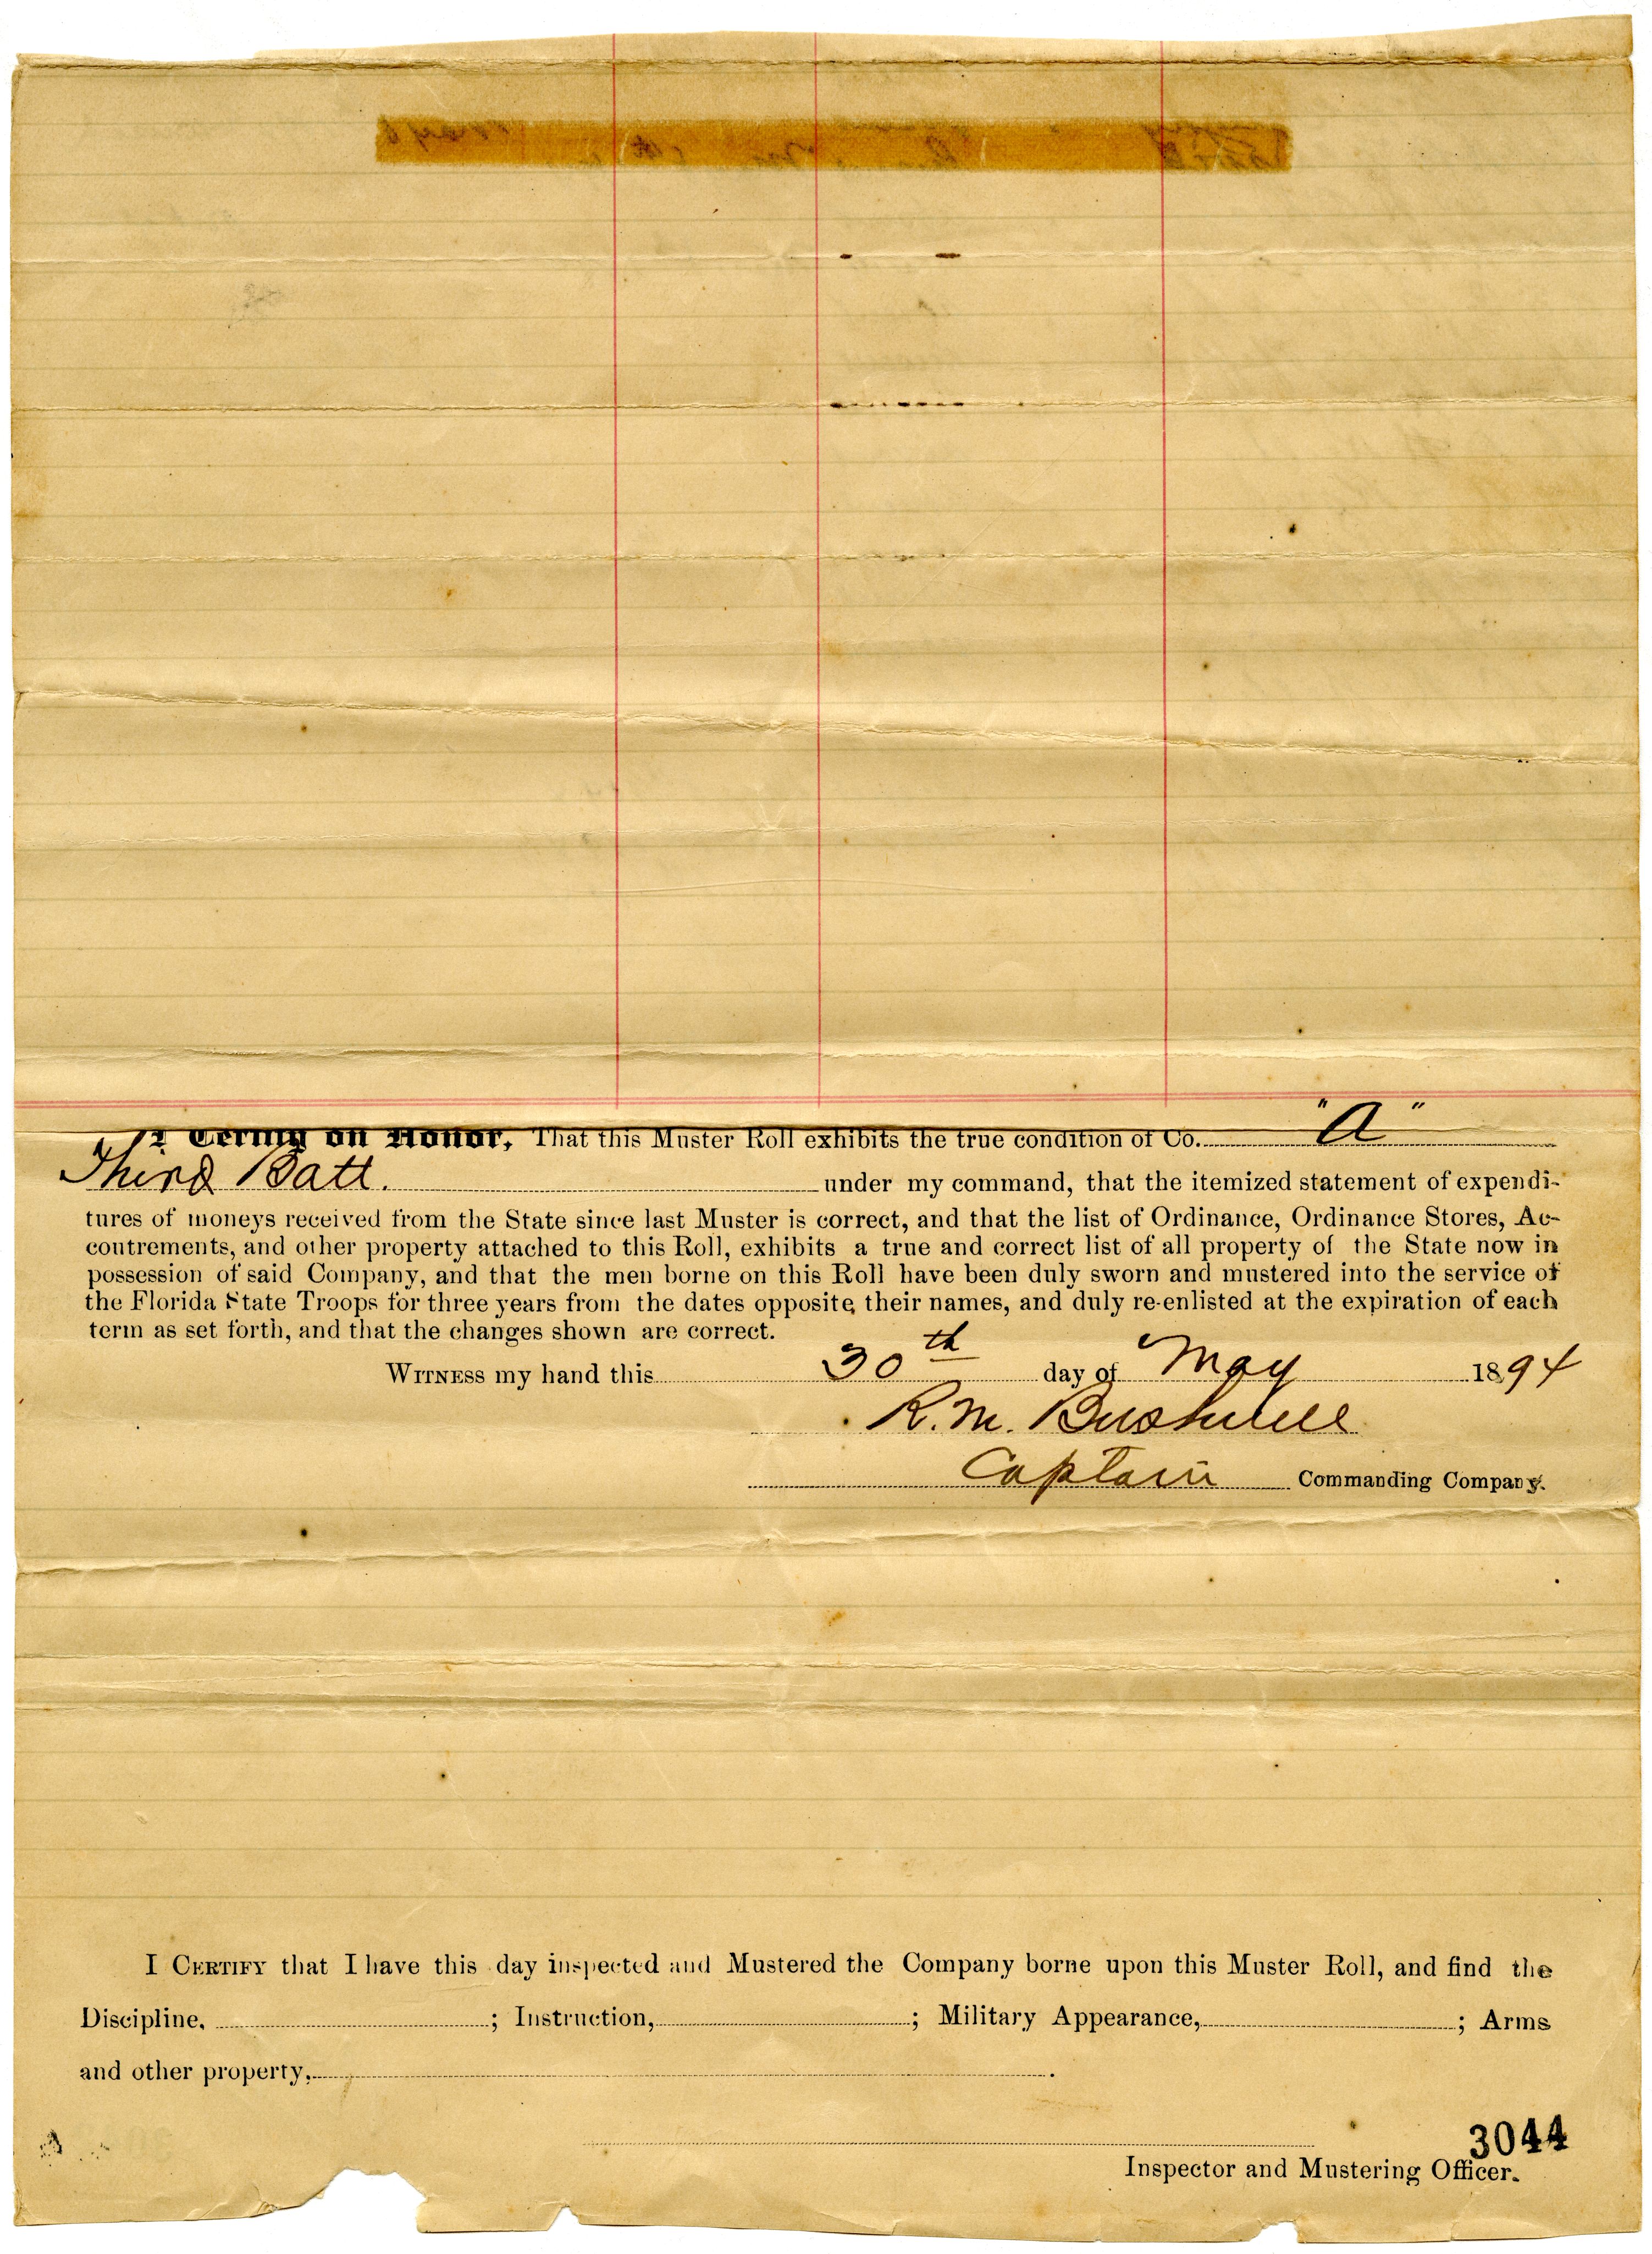 I Certify on Honor, That this Muster Roll exhibits the true condition of Co. "A"
Third Batt. under my command, that the itemized statement of expendi-
tures of moneys received from the State since last Muster is correct, and that the list of Ordinance, Ordinance Stores, Ac-
coutrements, and other property attached to this Roll, exhibits a true and correct list of all property of the State now in
possession of said Company, and that the men borne on this Roll have been duly sworn and mustered into the service of
the Florida State Troops for three years from the dates opposite their names, and duly re-enlisted at the expiration of each
term as set forth, and that the changes shown are correct.
WITNESS my hand this 30th day of May 1894
R. M. Bushnell
Captain Commanding Company.
I CERTIFY that I have this day inspected and Mustered the Company borne upon this Muster Roll, and find the
Discipline, ; Instruction, ; Military Appearance, ; Arms
and other property, .
3044
Inspector and Mustering Officer.